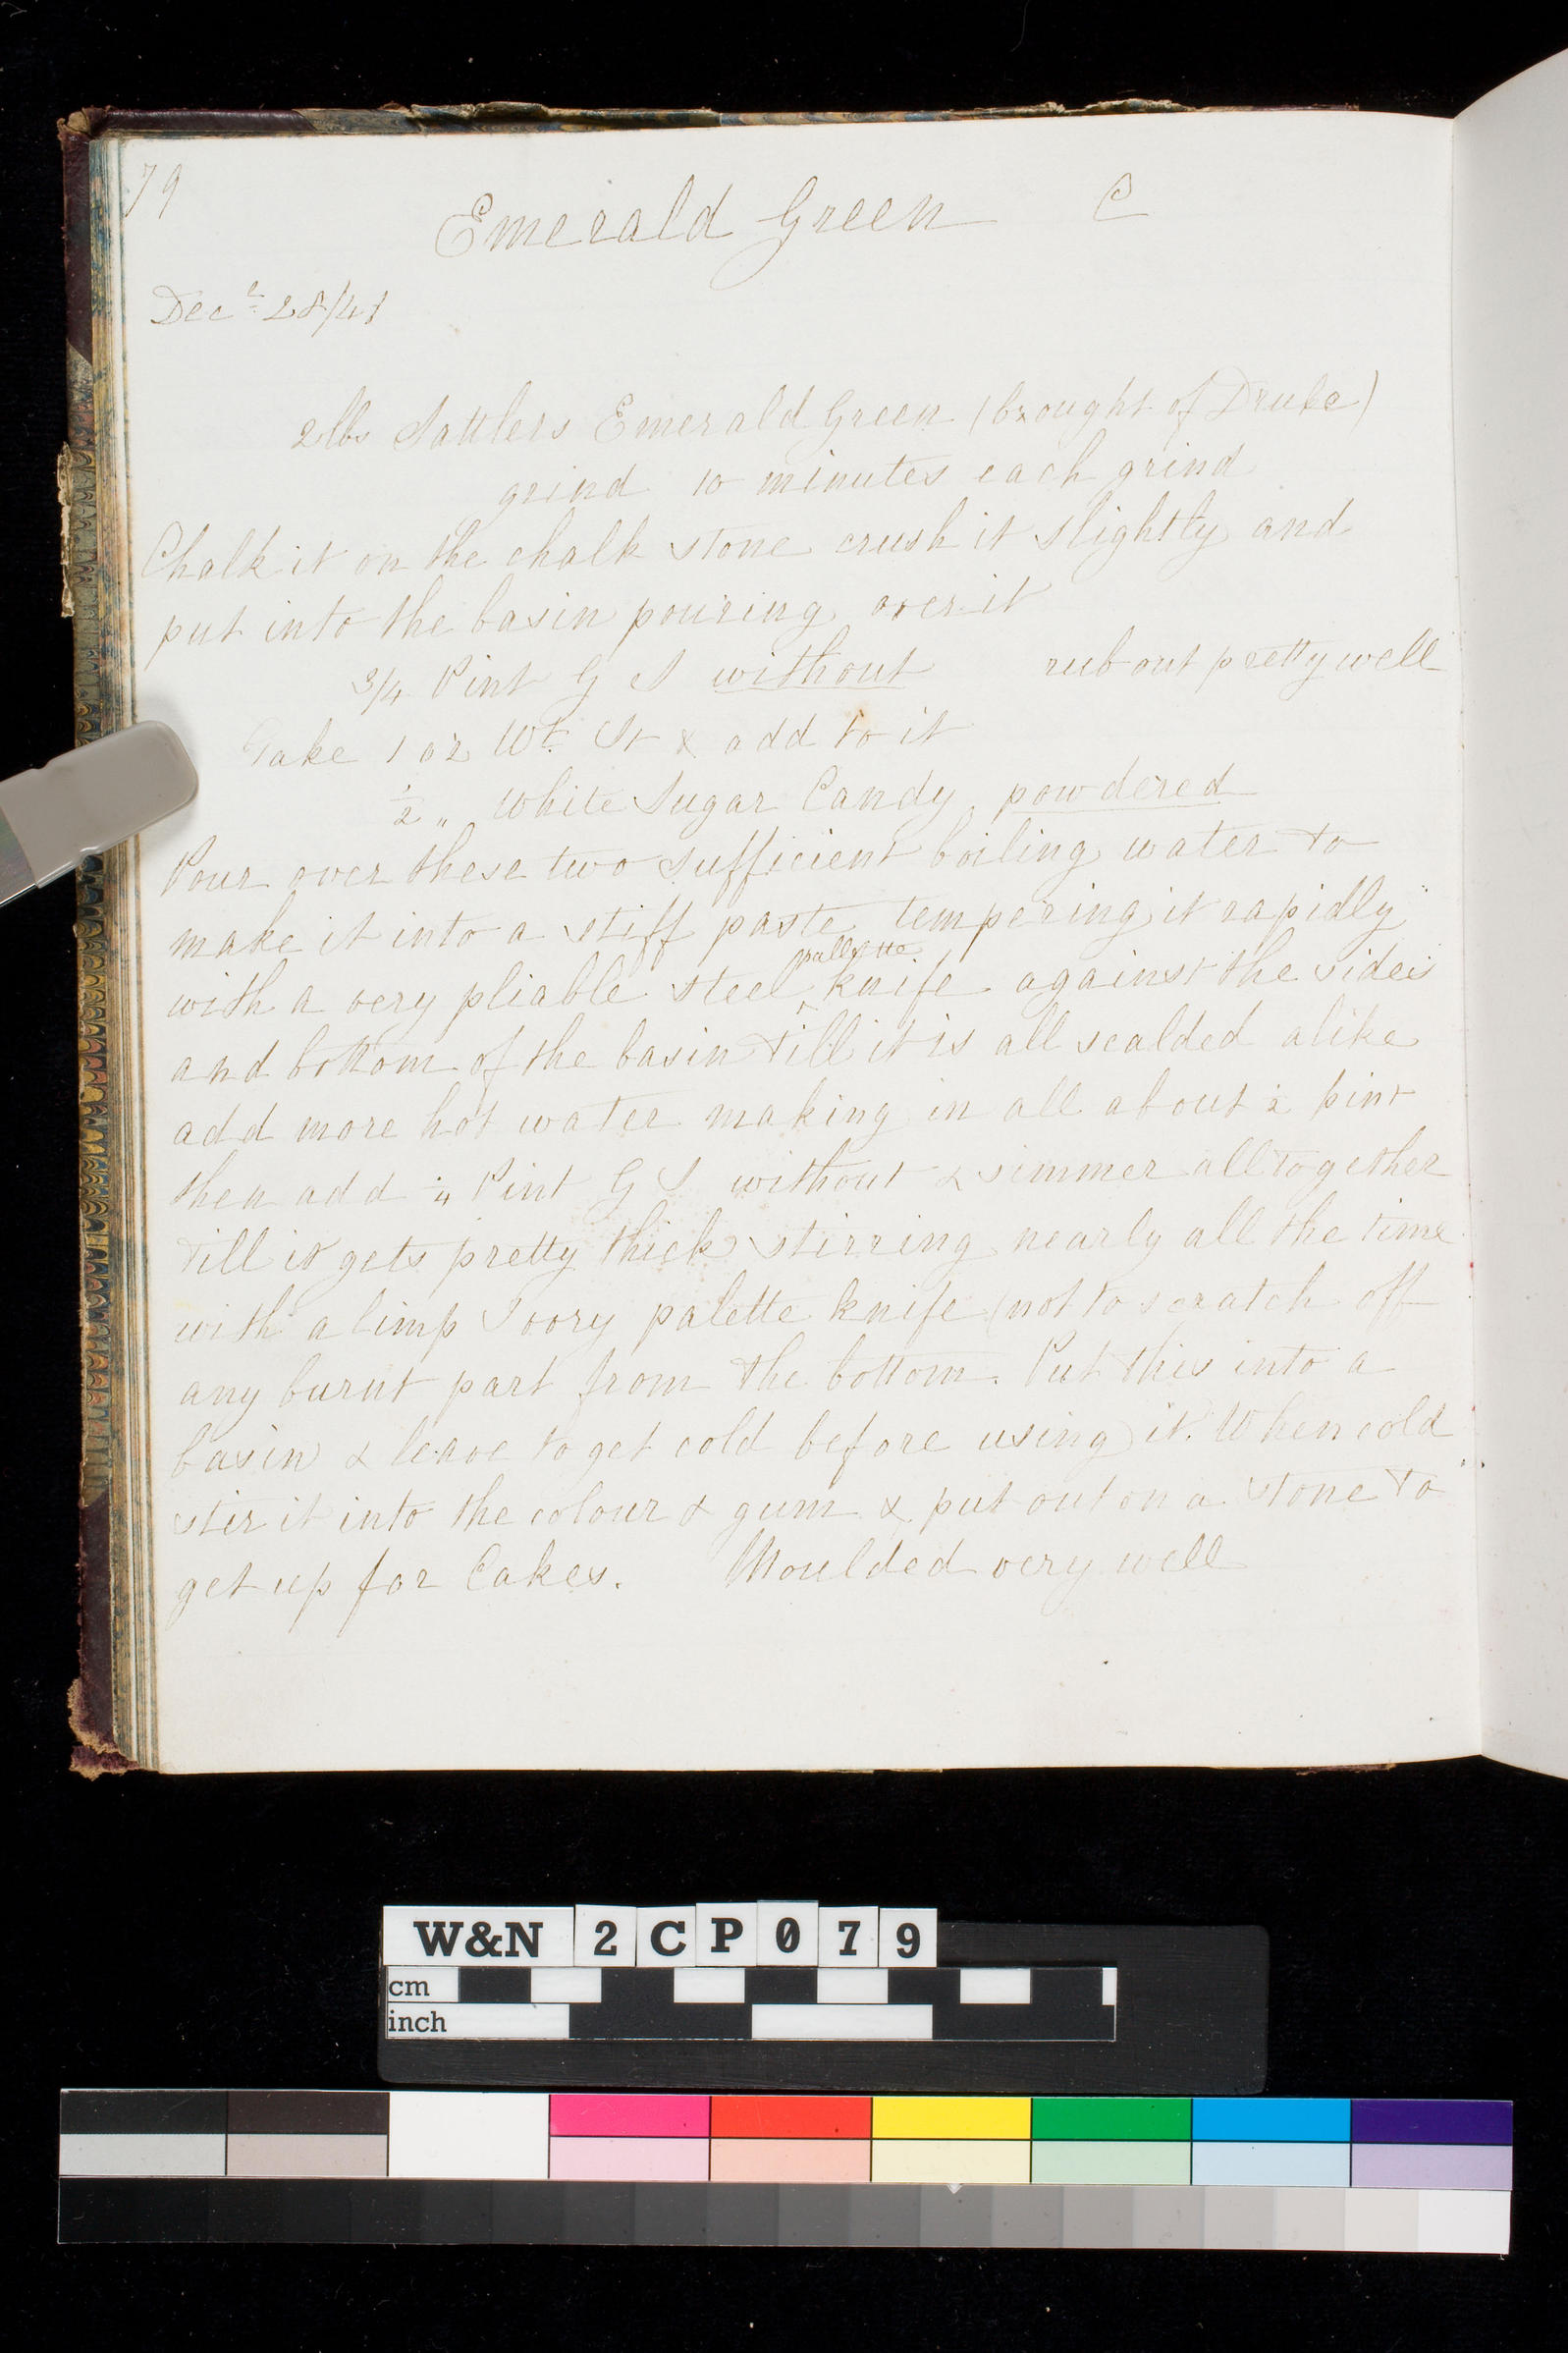 79
Emerald Green C
Decr 28/41
2lbs Sattlers Emerald Green (brought of Drube)
grind 10 minutes each grind
Chalk it on the chalk stone crush it slightly and
put into the basin pouring over it
3/4 Pint G S without rub out pretty well
Take 1 oz Wt St & add to it
1/2 „ White Sugar Candy powdered
Pour over these two sufficient boiling water to
make it into a stiff paste tempering it rapidly
with a very pliable steel pallette knife against the sides
and bottom of the basin till it is all scalded alike
add more hot water making in all about 1/2 pint
then add 1/4 Pint G S without & simmer all together
till it gets pretty thick stirring nearly all the time
with a limp Ivory palette knife (not to scratch off
any burnt part from the bottom. Put this into a
basin & leave to get cold before using it. When cold
stir it into the colour & gum & put out on a stone to
get up for Cakes. Moulded very well
W&N 2CP079
cm
inch